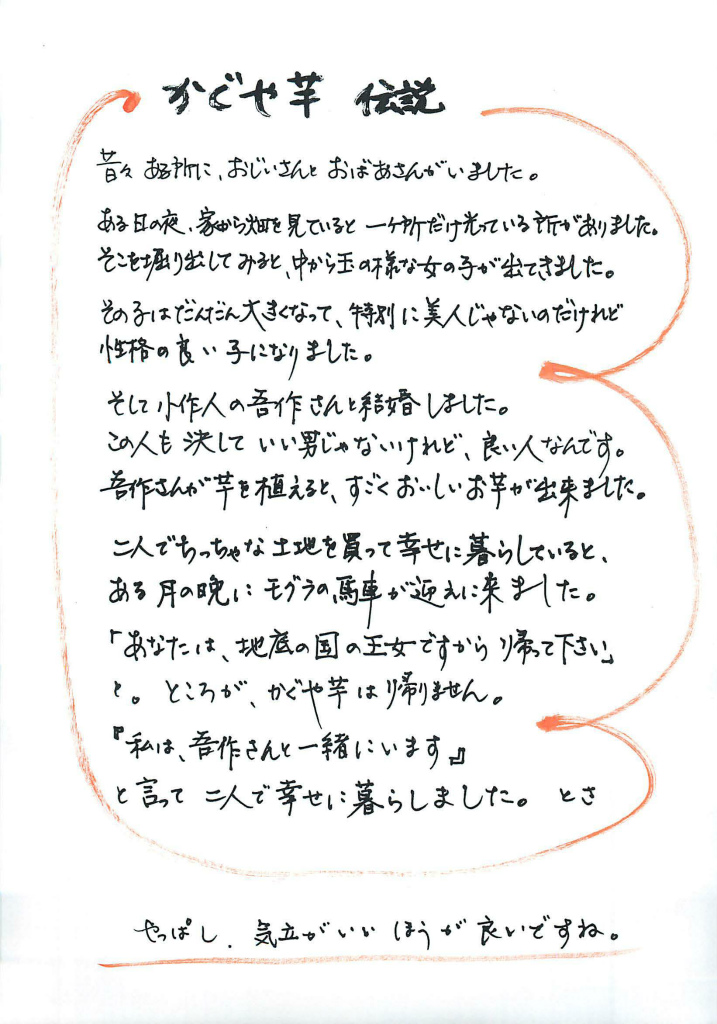 かぐや芋 伝説
昔々 ある所に、おじいさんと おばあさんがいました。
ある日の夜、家から畑を見ていると 一ヶ所だけ光っている所がありました。
そこを堀り出してみると、中から玉の様な女の子が出てきました。
その子はだんだん大きくなって、特別に美人じゃないのだけれど
性格の良い子になりました。
そして小作人の吾作さんと結婚しました。
この人も 決して いい男じゃないけれど、良い人なんです。
吾作さんが芋を植えると、すごくおいしいお芋が出来ました。
二人でちっちゃな土地を買って幸せに暮らしていると、
ある月の晩に モグラの馬車が迎えに来ました。
「あなたは、地底の国の王女ですから 帰って下さい」
と。ところが、かぐや芋は帰りません。
『私は、吾作さんと一緒にいます』
と言って 二人で幸せに暮らしました。 とさ
やっぱし、気立がいい ほうが良いですね。